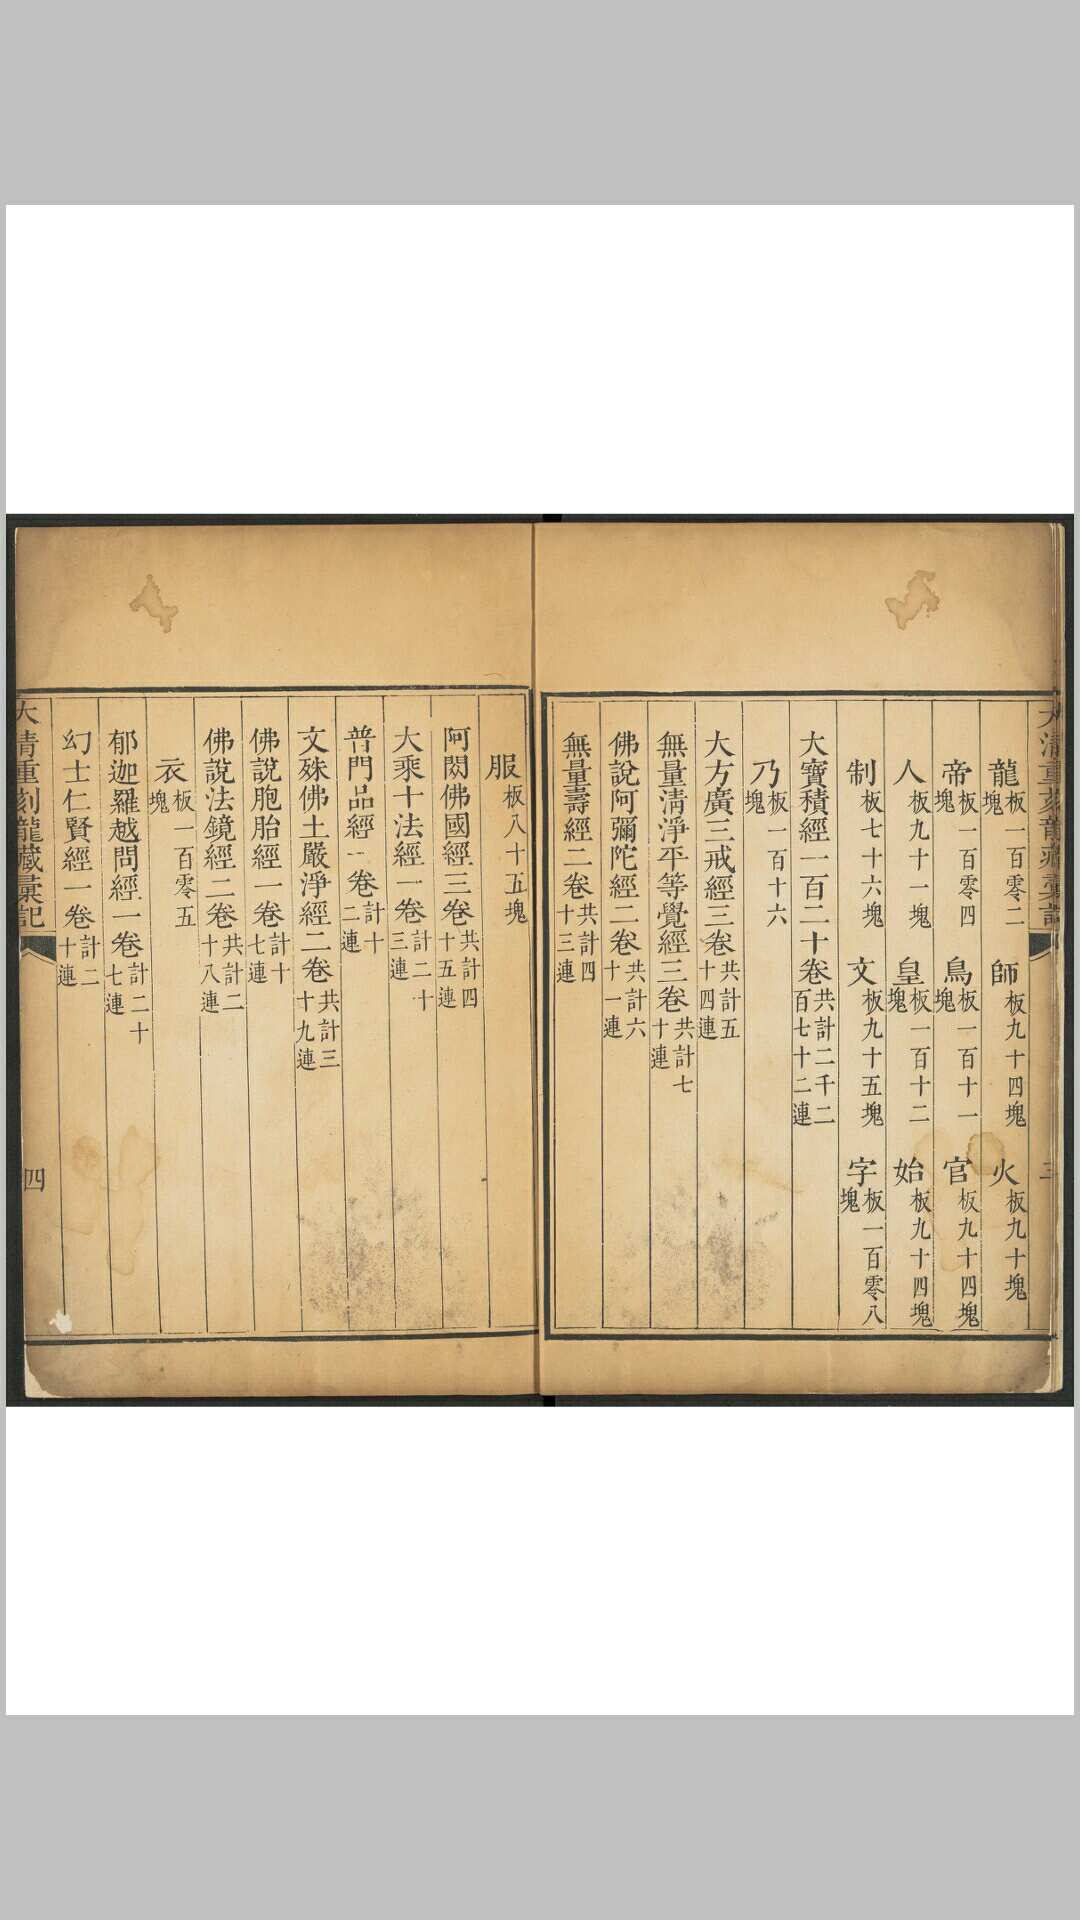 大清重刻龍藏彙記
三
龍板一百零二塊 師板九十四塊 火板九十塊
帝板一百零四塊 鳥板一百十一塊 官板九十四塊
人板九十一塊 皇板一百十二塊 始板九十四塊
制板七十六塊 文板九十五塊 字板一百零八塊
大寶積經一百二十卷共計二千二百七十二連
乃板一百十六塊
大方廣三戒經三卷共計五十四連
無量清淨平等覺經三卷共計七十連
佛說阿彌陀經二卷共計六十一連
無量壽經二卷共計四十三連
服板八十五塊
阿閦佛國經三卷共計四十五連
大乘十法經一卷計二十三連
普門品經一卷計十二連
文殊佛土嚴淨經二卷共計三十九連
佛說胞胎經一卷計十七連
佛說法鏡經二卷共計二十八連
衣板一百零五塊
郁迦羅越問經一卷計二十七連
幻士仁賢經一卷計二十連
大清重刻龍藏彙記
四